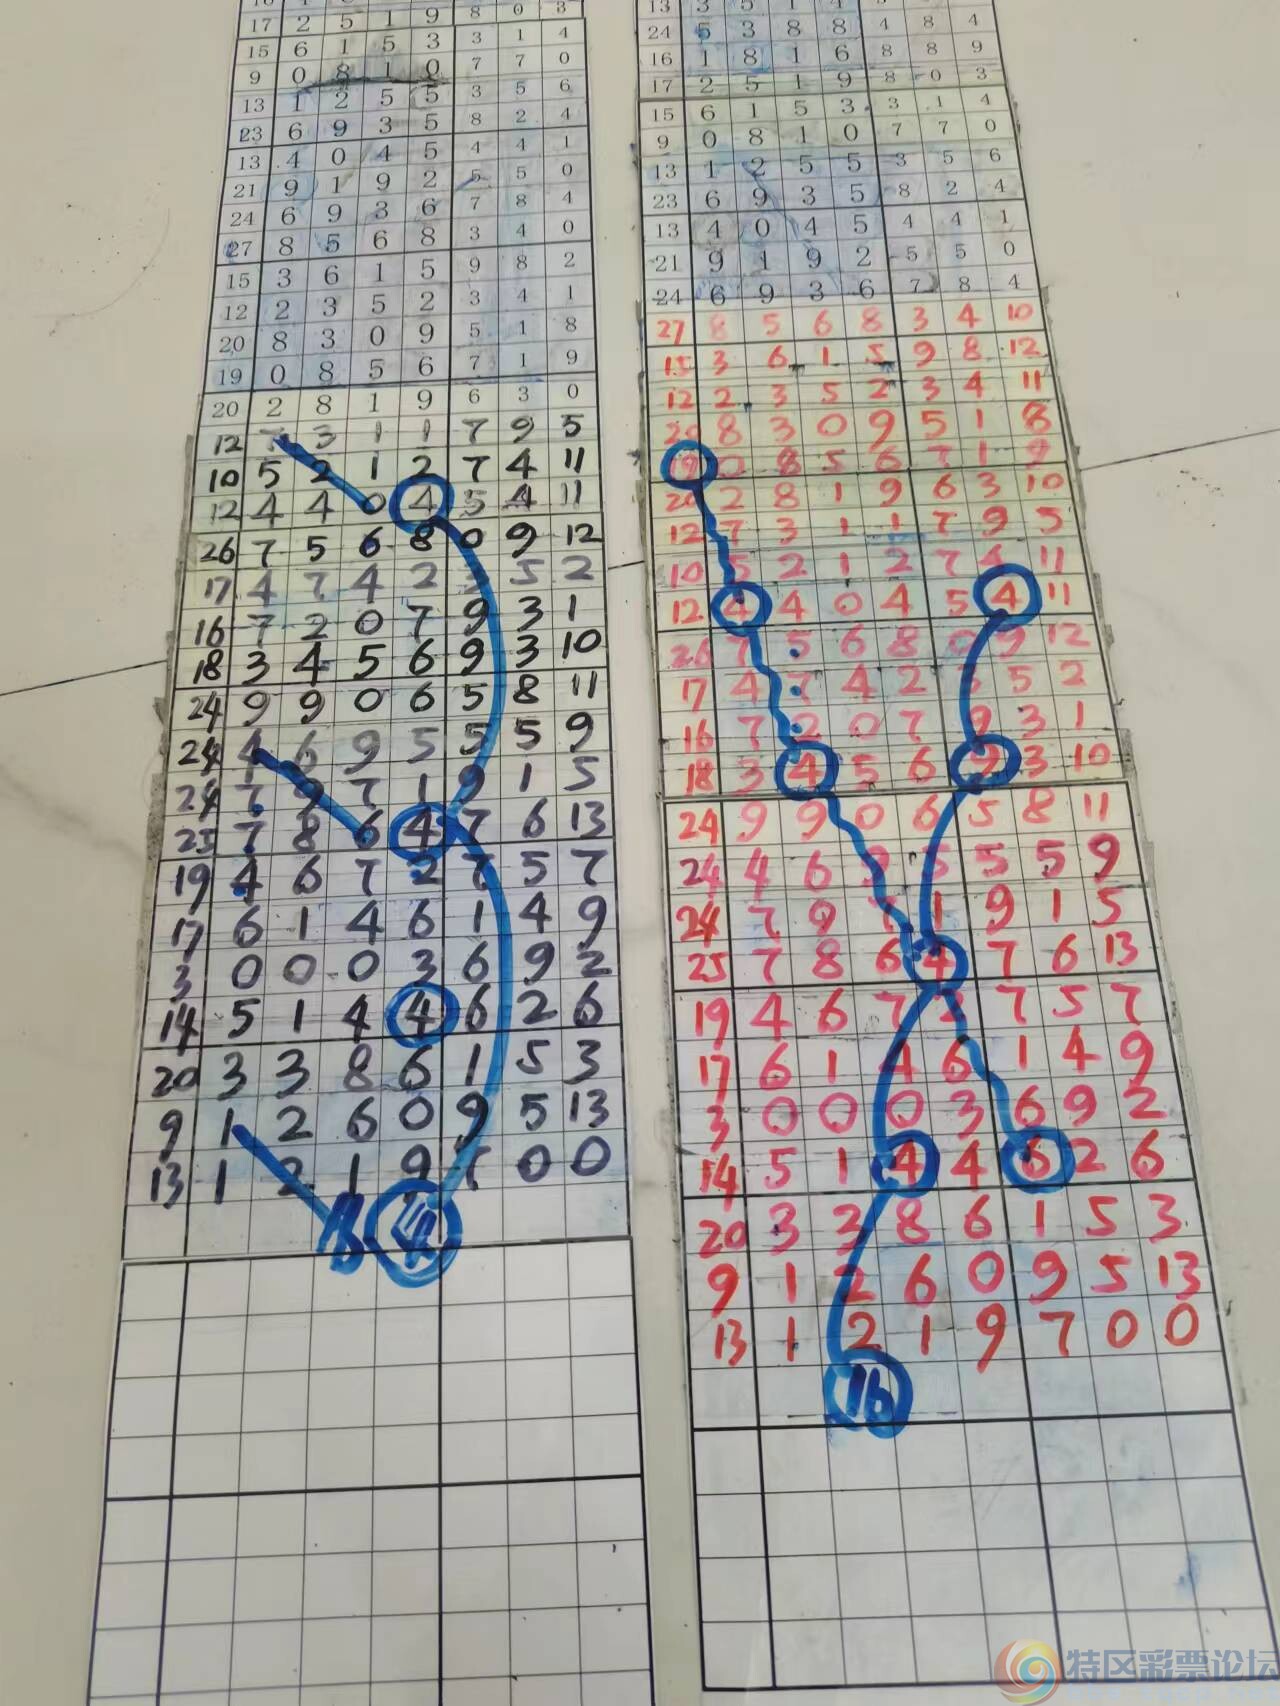 17 2 5 1 9 8 0 3
15 6 1 5 3 3 1 4
9 0 8 1 0 7 7 0
13 1 2 5 5 3 5 6
23 6 9 3 5 8 2 4
13 4 0 4 5 4 4 1
21 9 1 9 2 5 5 0
24 6 9 3 6 7 8 4
27 8 5 6 8 3 4 0
15 3 6 1 5 9 8 2
12 2 3 5 2 3 4 1
20 8 3 0 9 5 1 8
19 0 8 5 6 7 1 9
20 2 8 1 9 6 3 0
12 7 3 1 1 7 9 5
10 5 2 1 2 7 4 11
12 4 4 0 4 5 4 11
26 7 5 6 8 0 9 12
17 4 7 4 2 5 2
16 7 2 0 7 9 3 1
18 3 4 5 6 9 3 10
24 9 9 0 6 5 8 11
24 4 6 9 5 5 5 9
24 7 9 7 1 9 1 5
25 7 8 6 4 7 6 13
19 4 6 7 2 7 5 7
17 6 1 4 6 1 4 9
3 0 0 0 3 6 9 2
14 5 1 4 4 6 2 6
20 3 3 8 6 1 5 3
9 1 2 6 0 9 5 13
13 1 2 1 9 7 0 0
13 3 5 1 4
24 5 3 8 8 4 8 4
16 1 8 1 6 8 8 9
17 2 5 1 9 8 0 3
15 6 1 5 3 3 1 4
9 0 8 1 0 7 7 0
13 1 2 5 5 3 5 6
23 6 9 3 5 8 2 4
13 4 0 4 5 4 4 1
21 9 1 9 2 5 5 0
24 6 9 3 6 7 8 4
27 8 5 6 8 3 4 10
15 3 6 1 5 9 8 12
12 2 3 5 2 3 4 11
20 8 3 0 9 5 1 8
19 0 8 5 6 7 1 9
20 2 8 1 9 6 3 10
12 7 3 1 1 7 9 5
10 5 2 1 2 7 4 11
12 4 4 0 4 5 4 11
26 7 5 6 8 0 9 12
17 4 7 4 2 5 2
16 7 2 0 7 9 3 1
18 3 4 5 6 9 3 10
24 9 9 0 6 5 8 11
24 4 6 9 5 5 5 9
24 7 9 7 1 9 1 5
25 7 8 6 4 7 6 13
19 4 6 7 2 7 5 7
17 6 1 4 6 1 4 9
3 0 0 0 3 6 9 2
14 5 1 4 4 6 2 6
20 3 3 8 6 1 5 3
9 1 2 6 0 9 5 13
13 1 2 1 9 7 0 0
16
特区彩票论坛